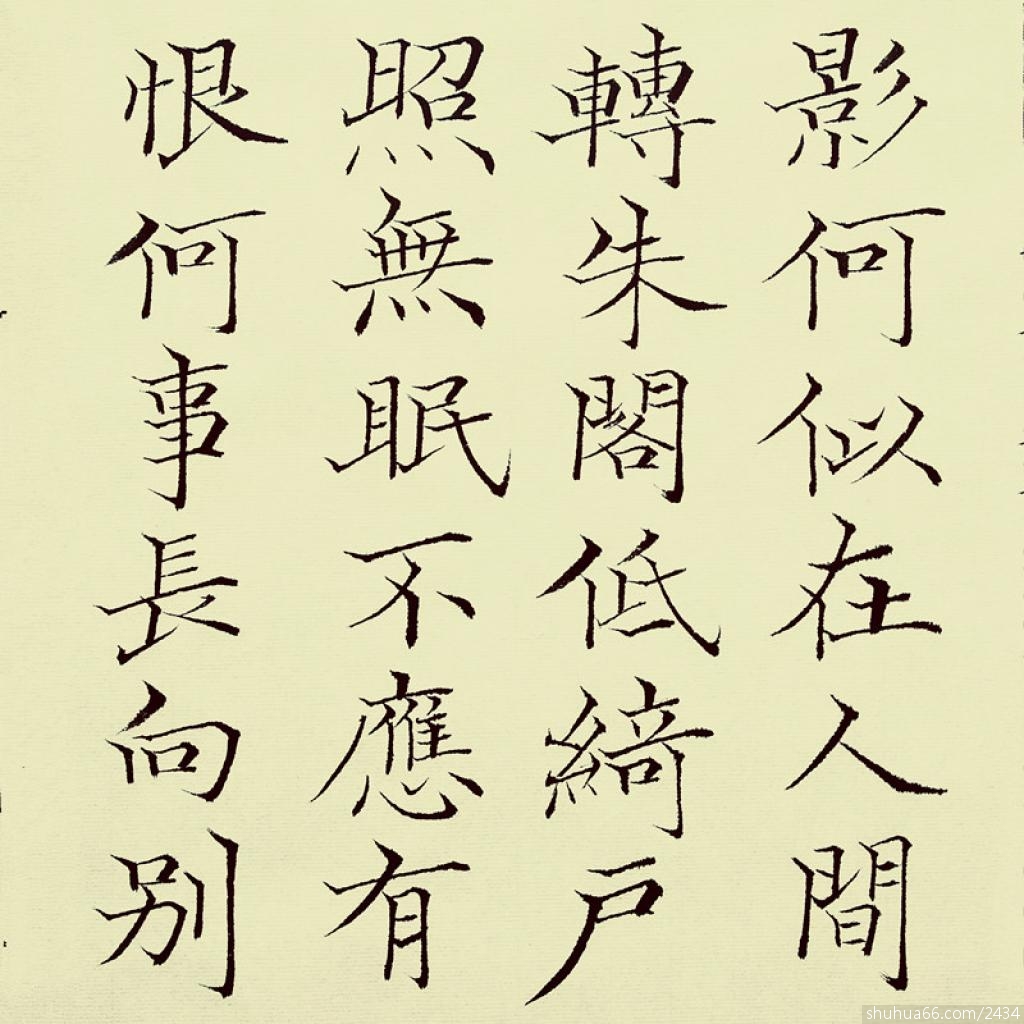 影何似在人間
轉朱閣低綺戶
照無眠不應有
恨何事長向别
shuhua66.com/2434